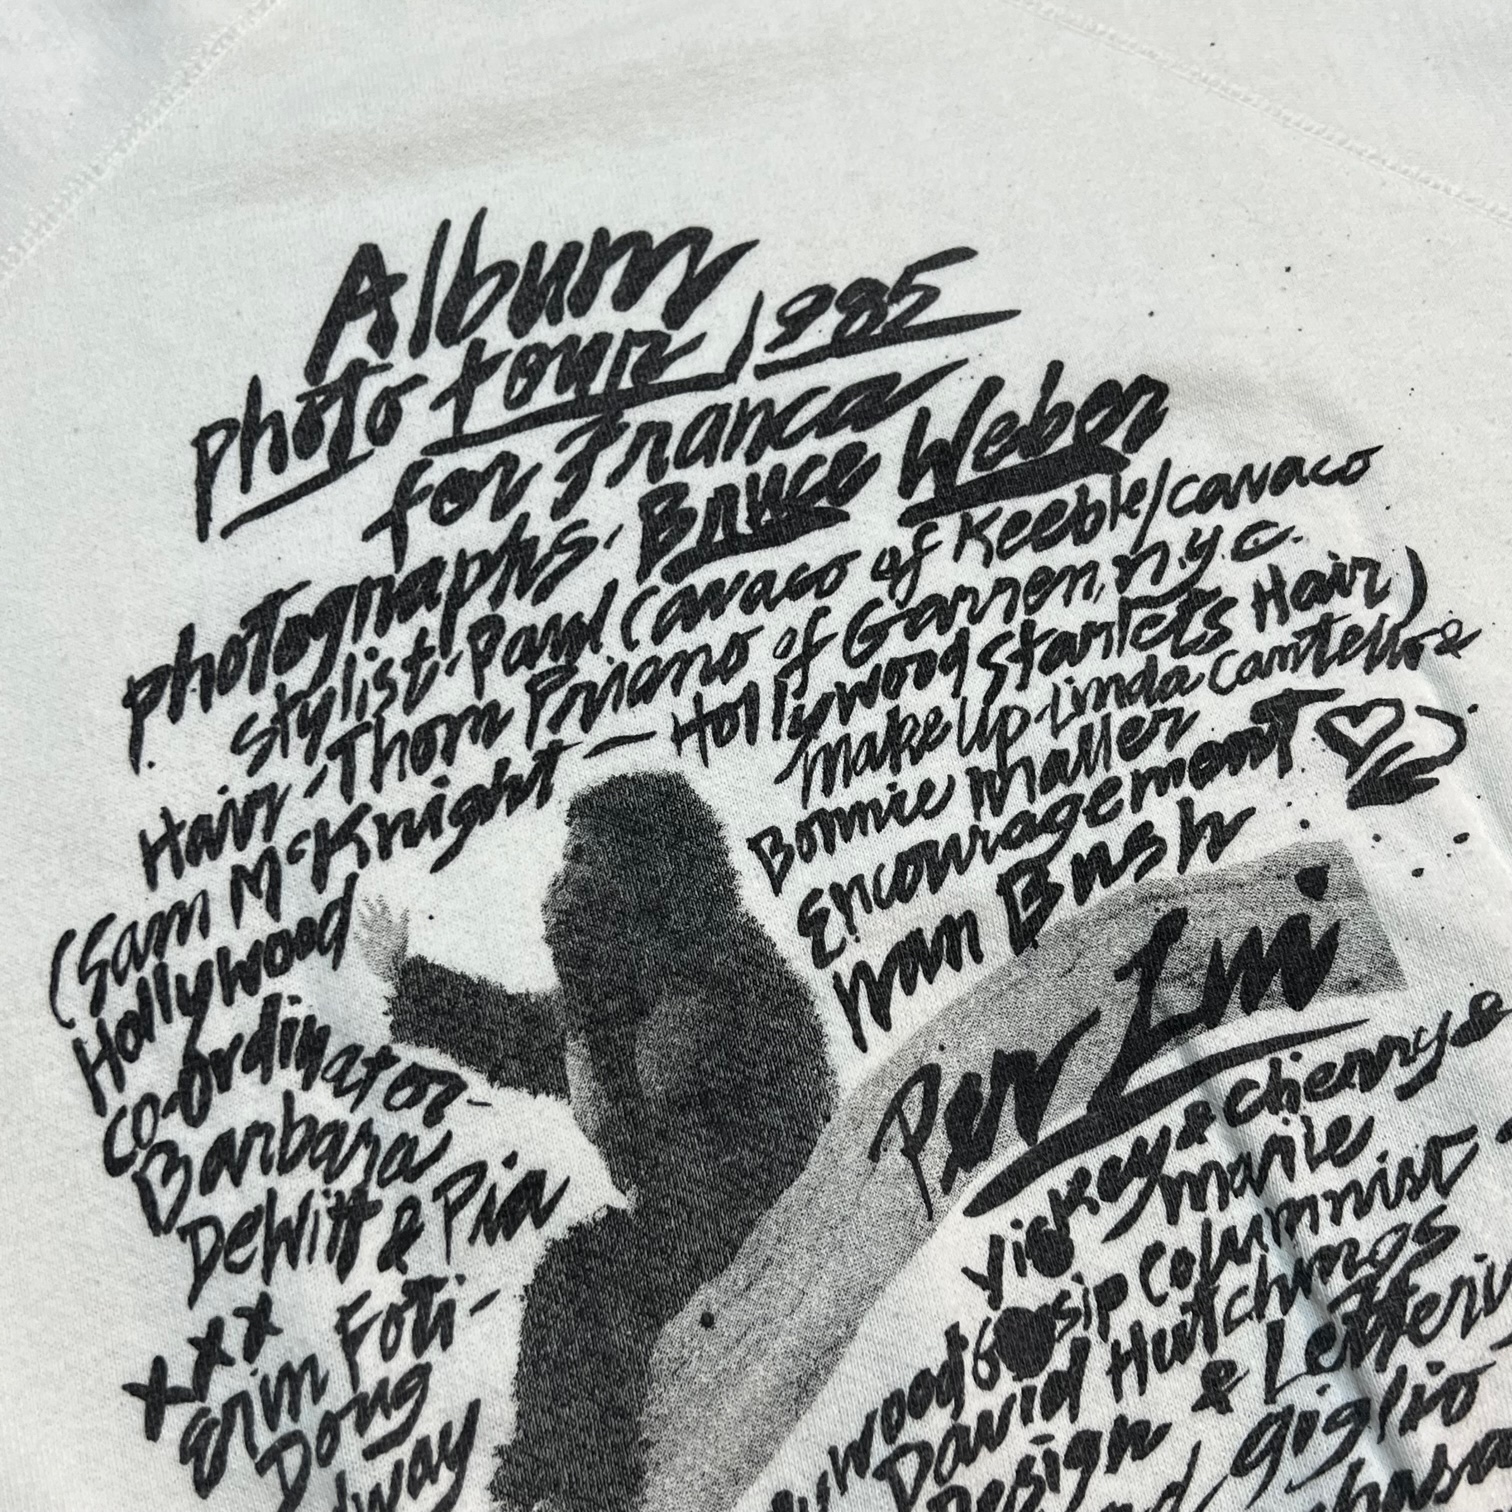 Album
photo tour 1985
for Franca
photographs - Bruce Weber
stylist - Paul Cavaco of Keeble/cavaco
Hair - Thom Priano of Garren, n.y.c.
(Sam McKnight — Hollywood Starlets Hair)
Make Up - Linda Cantello &
Bonnie Maller
Encouragement
nan Bush
Hollywood
co-ordinator -
Barbara
DeWitt & Pia
xxx
Grim Foti -
Doug
Per Lui
& cherry &
marile
gossip columnist
David Hutchings
Design & Letteri
giglio